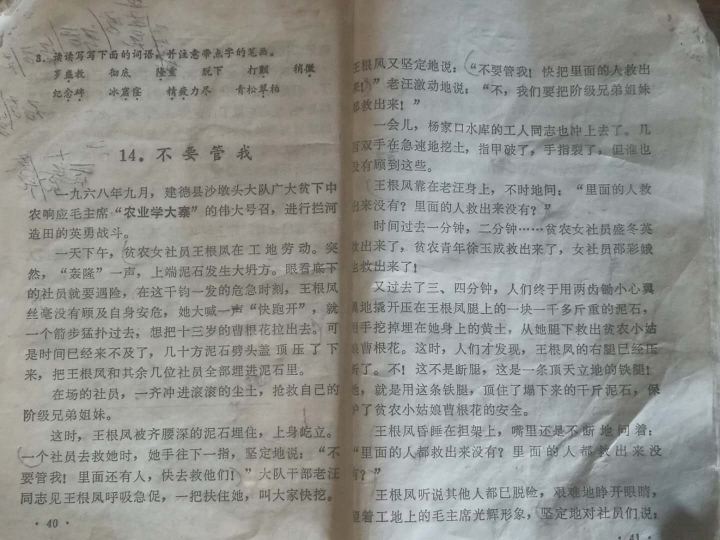 3. 读读写写下面的词语，并注意带点字的笔画。
罗盛教 彻底 隆重 脱下 打颤 稍微
纪念碑 冰窟窿 精疲力尽 青松翠柏
14. 不要管我
一九六八年九月，建德县沙墩头大队广大贫下中
农响应毛主席“农业学大寨”的伟大号召，进行拦河
造田的英勇战斗。
一天下午，贫农女社员王根凤在工地劳动。突
然，“轰隆”一声，上端泥石发生大坍方。眼看底下
的社员就要遇险，在这千钧一发的危急时刻，王根凤
丝毫没有顾及自身安危，她大喊一声“快跑开”，就
一个箭步猛扑过去，想把十三岁的曹根花拉出去。可
是时间已经来不及了，几十方泥石劈头盖顶压了下
来，把王根凤和其余几位社员全部埋进泥石里。
在场的社员，一齐冲进滚滚的尘土，抢救自己的
阶级兄弟姐妹。
这时，王根凤被齐腰深的泥石埋住，上身屹立。
一个社员去救她时，她手往下一指，坚定地说：“不
要管我！里面还有人，快去救他们！”大队干部老汪
同志见王根凤呼吸急促，一把扶住她，叫大家快挖。
·40·
王根凤又坚定地说：“不要管我！快把里面的人救出
来！”老汪激动地说：“不，我们要把阶级兄弟姐妹
都救出来！”
一会儿，杨家口水库的工人同志也冲上去了。几
百双手在急速地挖土，指甲破了，手指裂了，但谁也
没有顾到这些。
王根凤靠在老汪身上，不时地问：“里面的人救
出来没有？里面的人救出来没有？”
时间过去一分钟，二分钟……贫农女社员盛冬英
救出来了，贫农青年徐玉成救出来了，女社员邵彩娥
也救出来了！
又过去了三、四分钟，人们终于用两齿锄小心翼
翼地撬开压在王根凤腿上的一块一千多斤重的泥石，
用手挖掉埋在她身上的黄土，从她腿下救出贫农小姑
娘曹根花。这时，人们才发现，王根凤的右腿已经压
断了。不！这不是断腿，这是一条顶天立地的铁腿！
她，就是用这条铁腿，顶住了塌下来的千斤泥石，保
护了贫农小姑娘曹根花的安全。
王根凤昏睡在担架上，嘴里还是不断地问着：
“里面的人都救出来没有？里面的人都救出来没
有？”
王根凤听说其他人都已脱险，艰难地睁开眼睛，
望着工地上的毛主席光辉形象，坚定地对社员们说：
·41·